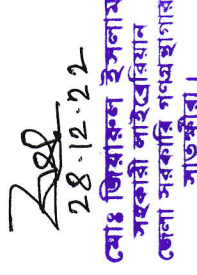 28.12.22
মোঃ জিয়ারুল ইসলাম
সহকারী লাইব্রেরিয়ান
জেলা সরকারি গণগ্রন্থাগার
সাতক্ষীরা।